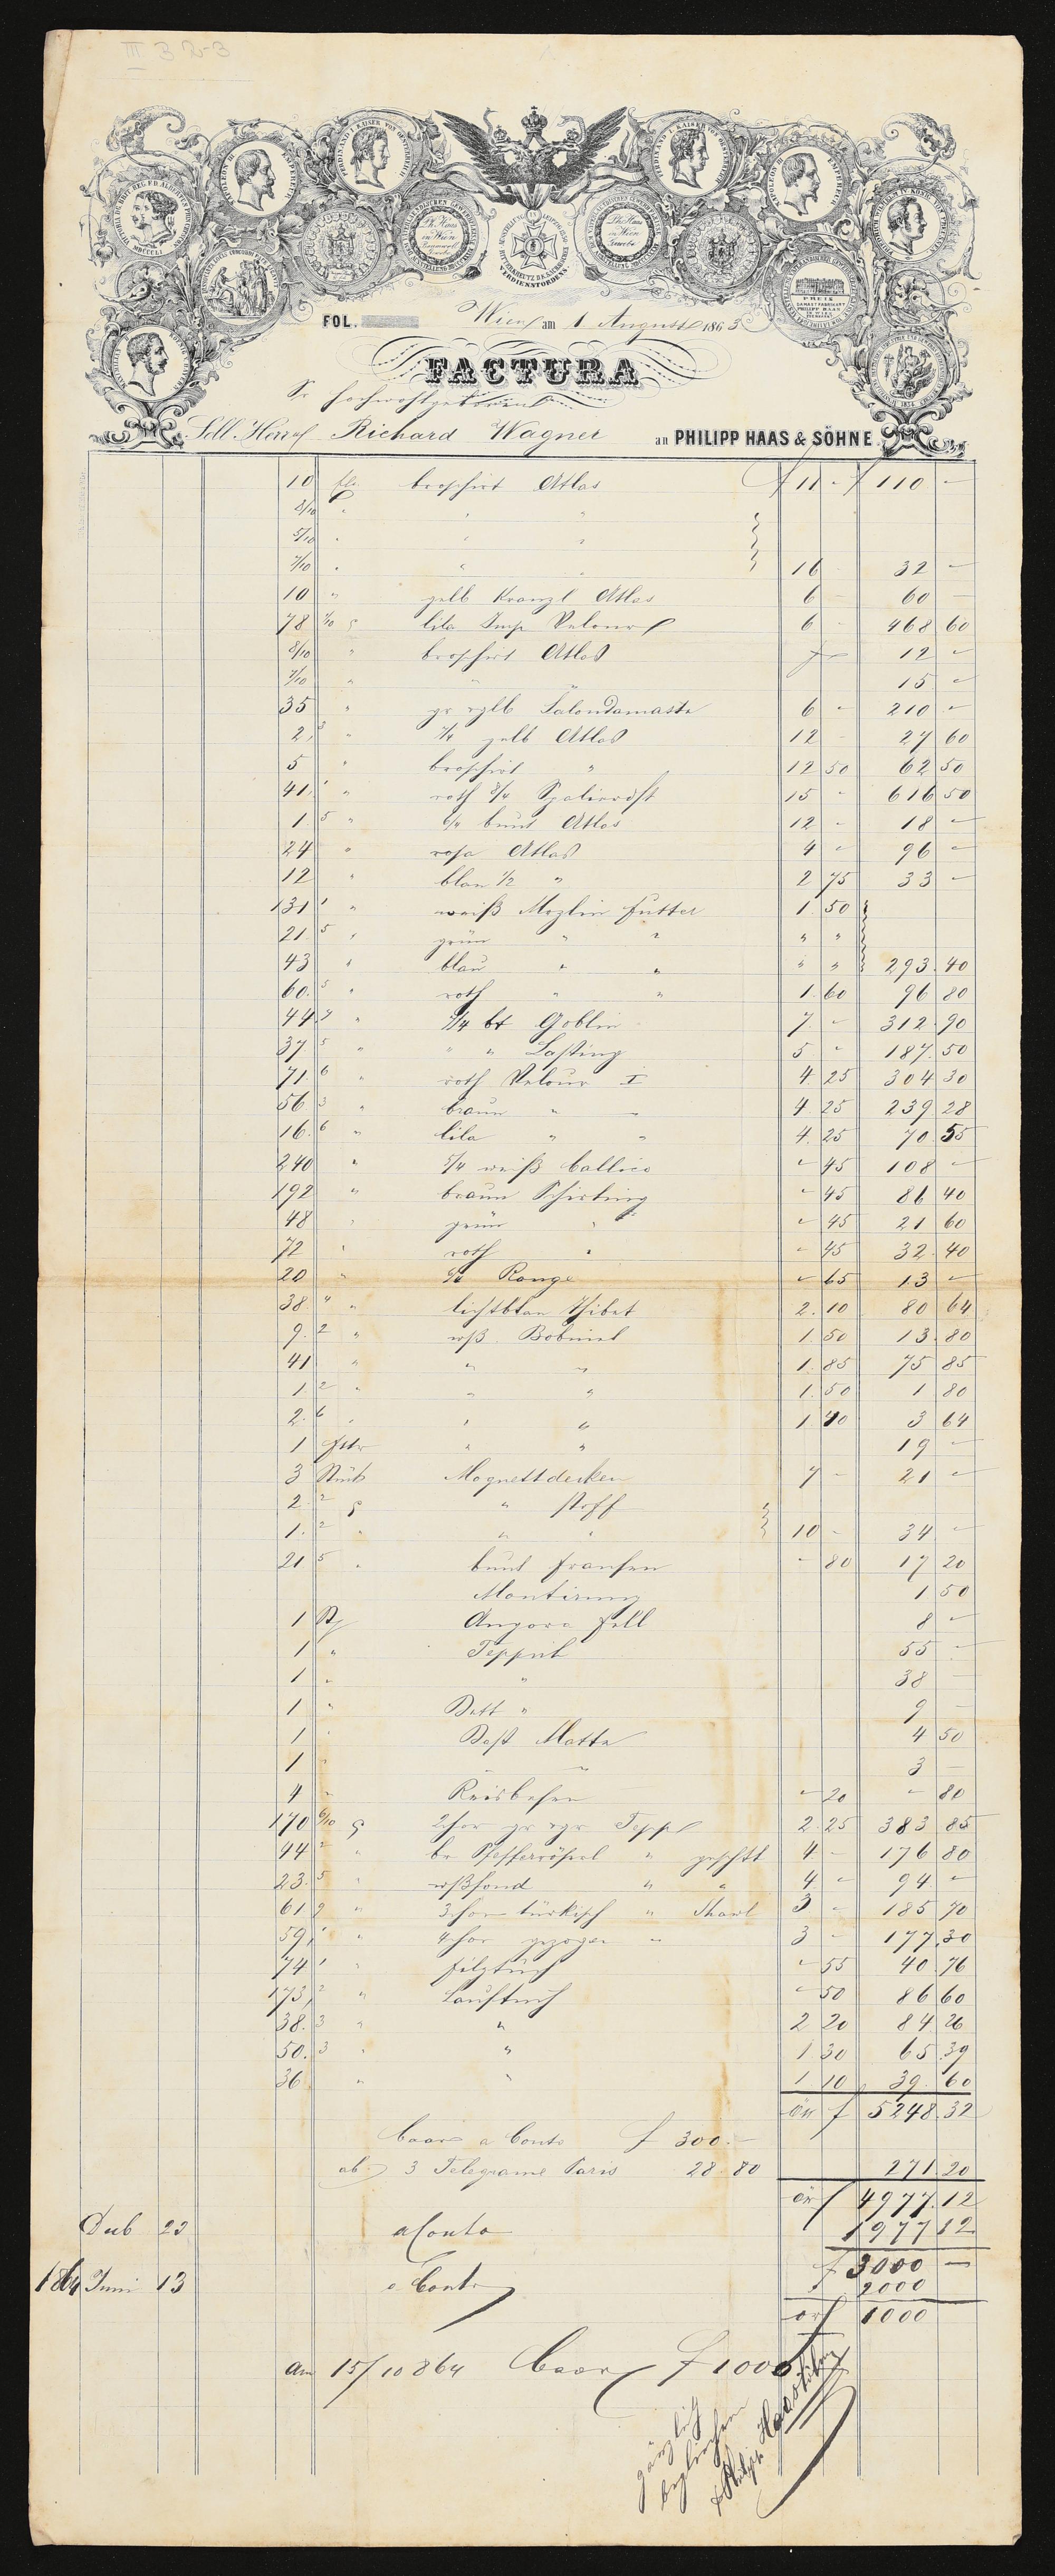 III 3 2-3
VICTORIA D.G. BRIT. REG. F.D. ALBERTUS PRINCEPS
MDCCCLI
NAPOLEON III EMPEREUR
FERDINAND I KAISER VON OESTERREICH
FERDINAND I. KAISER VON OESTERREICH
NAPOLEON III EMPEREUR
Ph. Haas in Wien
VERDIENSTORDENS
Ph. Haas in Wien Gewebe
PREIS
DAMAST FABRIKANT
PHILIPP HAAS
FOL.
Wien am 1 August 1863
FACTURA
Sr Hochwohlgeboren
Soll Herrn Richard Wagner an PHILIPP HAAS & SÖHNE
10 broschirt Atlas f 11 - f 110 -
8/10 " " "
5/10 " " "
7/10 " " " 16 32 -
10 " gelb Kranzl Atlas 6 - 60
78 1/10 " lila Imp Velour 6 - 468 60
8/10 " broschirt Atlas 12 -
7/10 " " " 15 -
35 " Salondamaste 6 - 210 -
2 3 " 7/4 gelb Atlas 12 - 27 60
5 " broschirt " 12 50 62 50
41 1 " roth 8/4 15 - 616 50
1 5 " 6/4 bunt Atlas 12 - 18 -
24 " rosa Atlas 4 - 96 -
12 " blau 1/2 " 2 75 33 -
131 1 " weiß Mozlin Futter 1 50
21 5 " grün " " " "
43 " blau " " " " 293 40
60 5 " roth " " 1 60 96 80
44 7 " 7/4 bt Goblin 7 - 312 90
37 5 " " " Lasting 5 - 187 50
71 6 " roth Velour I 4 25 304 30
56 3 " braun " " 4 25 239 28
16 6 " lila " " 4 25 70 55
240 " 5/4 weiß Callico - 45 108 -
192 " braun Schirting - 45 86 40
48 " grün " - 45 21 60
72 " roth " - 45 32 40
20 " 6/4 Ronge - 65 13 -
38 4 " lichtblau Thibet 2 10 80 64
9 2 " wß. Bobinet 1 50 13 80
41 " " " 1 85 75 85
1 2 " " " 1 50 1 80
2 6 " " " 1 40 3 64
1 " " 19 -
3 Stück Moquettdecken 7 - 21 -
2 2 " Stoff
1 2 " " " 10 - 34 -
21 5 " bunt Fransen - 80 17 20
Montirung 1 50
1 St Angora Fell 8 -
1 " Teppich 55 -
1 " " 38 -
1 " Bett " 9 -
1 " Bast Matte 4 50
1 " " " 3 -
4 " Reisbesen - 20 - 80
170 6/10 2 25 383 85
44 2 " 4 - 176 80
23 5 " wßfond " " 4 - 94 -
61 9 " türkisch " Shawl 3 - 185 70
59 1 " gezogen " 3 - 177 30
74 1 " Filztuch - 55 40 76
173 2 " Lauftuch - 50 86 60
38 3 " " 2 20 84 26
50 3 " " 1 30 65 39
36 " " 1 10 39 60
f 5248 32
Baar a Conto f 300.-
ab 3 Telegrame Paris 28 80 271 20
f 4977 12
23 a Conto 1977 12
f 3000 -
1864 Juni 13 a Conto 2000
f 1000
am 15/10 864 Baar f 1000
gänzlich
beglichen
Philipp Haas & Söhne